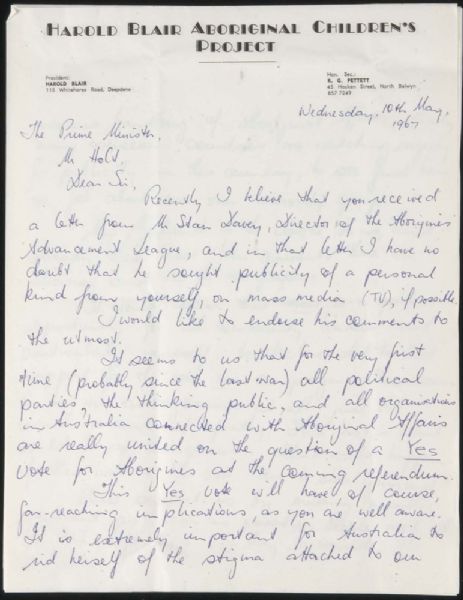 HAROLD BLAIR ABORIGINAL CHILDREN'S
PROJECT
President:
HAROLD BLAIR
118 Whitehorse Road, Deepdene
Hon. Sec.:
R. G. PETTETT
45 Hosken Street, North Balwyn
857 7049
Wednesday, 10th May,
1967
The Prime Minister,
Mr Holt.
Dear Sir,
Recently I believe that you received
a letter from Mr Stan Davey, Director of the Aborigines
Advancement League, and in that letter I have no
doubt that he sought publicity of a personal
kind from yourself, on mass media (TV), if possible.
I would like to endorse his comments to
the utmost.
It seems to us that for the very first
time (probably since the last war) all political
parties, the thinking public, and all organisations
in Australia connected with Aboriginal Affairs
are really united on the question of a Yes
vote for Aborigines at the coming referendum.
This Yes vote will have, of course,
far-reaching implications, as you are well aware.
It is extremely important for Australia to
rid herself of the stigma attached to our